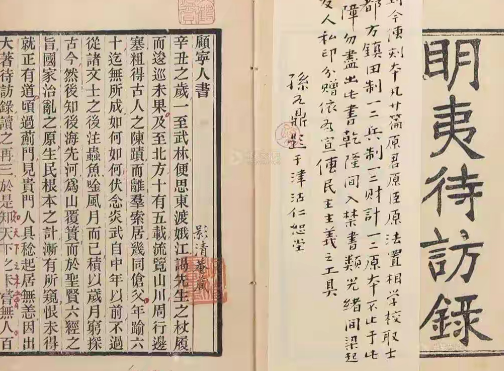 明夷待訪錄
到今傳刻本凡廿篇原君原臣原法置相學校取士
都方鎮田制一二兵制一二財計一二原本不止于此
障勿盡出此書乾隆間入禁書類光緒間梁起
友人私印分贈依为宣傳民主主義之工具
鼎跋于津沽仁恕堂
顧寧人書
辛丑之歲一至武林便思東渡娥江謁先生之杖履
而逡巡未果及至北方十有五載流覽山川周行邊
塞粗得古人之陳蹟而離羣索居幾同傖父年逾六
十迄無所成如何如何伏念炎武自中年以前不過
從諸文士之後注蟲魚唫風月而已積以歲月窮探
古今然後知後海先河爲山覆簣而於聖賢六經之
旨國家治亂之原生民根本之計漸有所窺恨未得
就正有道頃過薊門見貴門人具稔起居無恙因出
大著待訪錄讀之再三於是知天下之未嘗無人百